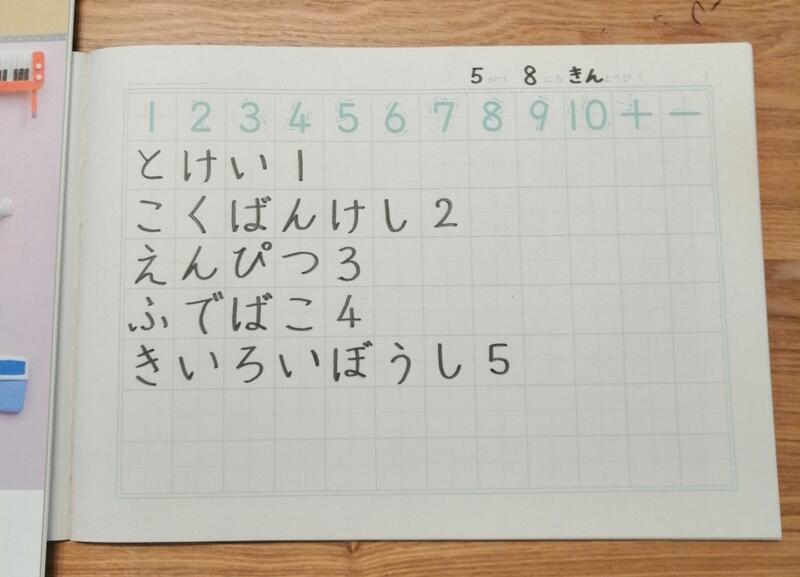 5がつ 8にち きんようび ( )
1 2 3 4 5 6 7 8 9 10 + −
とけい1
こくばんけし2
えんぴつ3
ふでばこ4
きいろいぼうし5